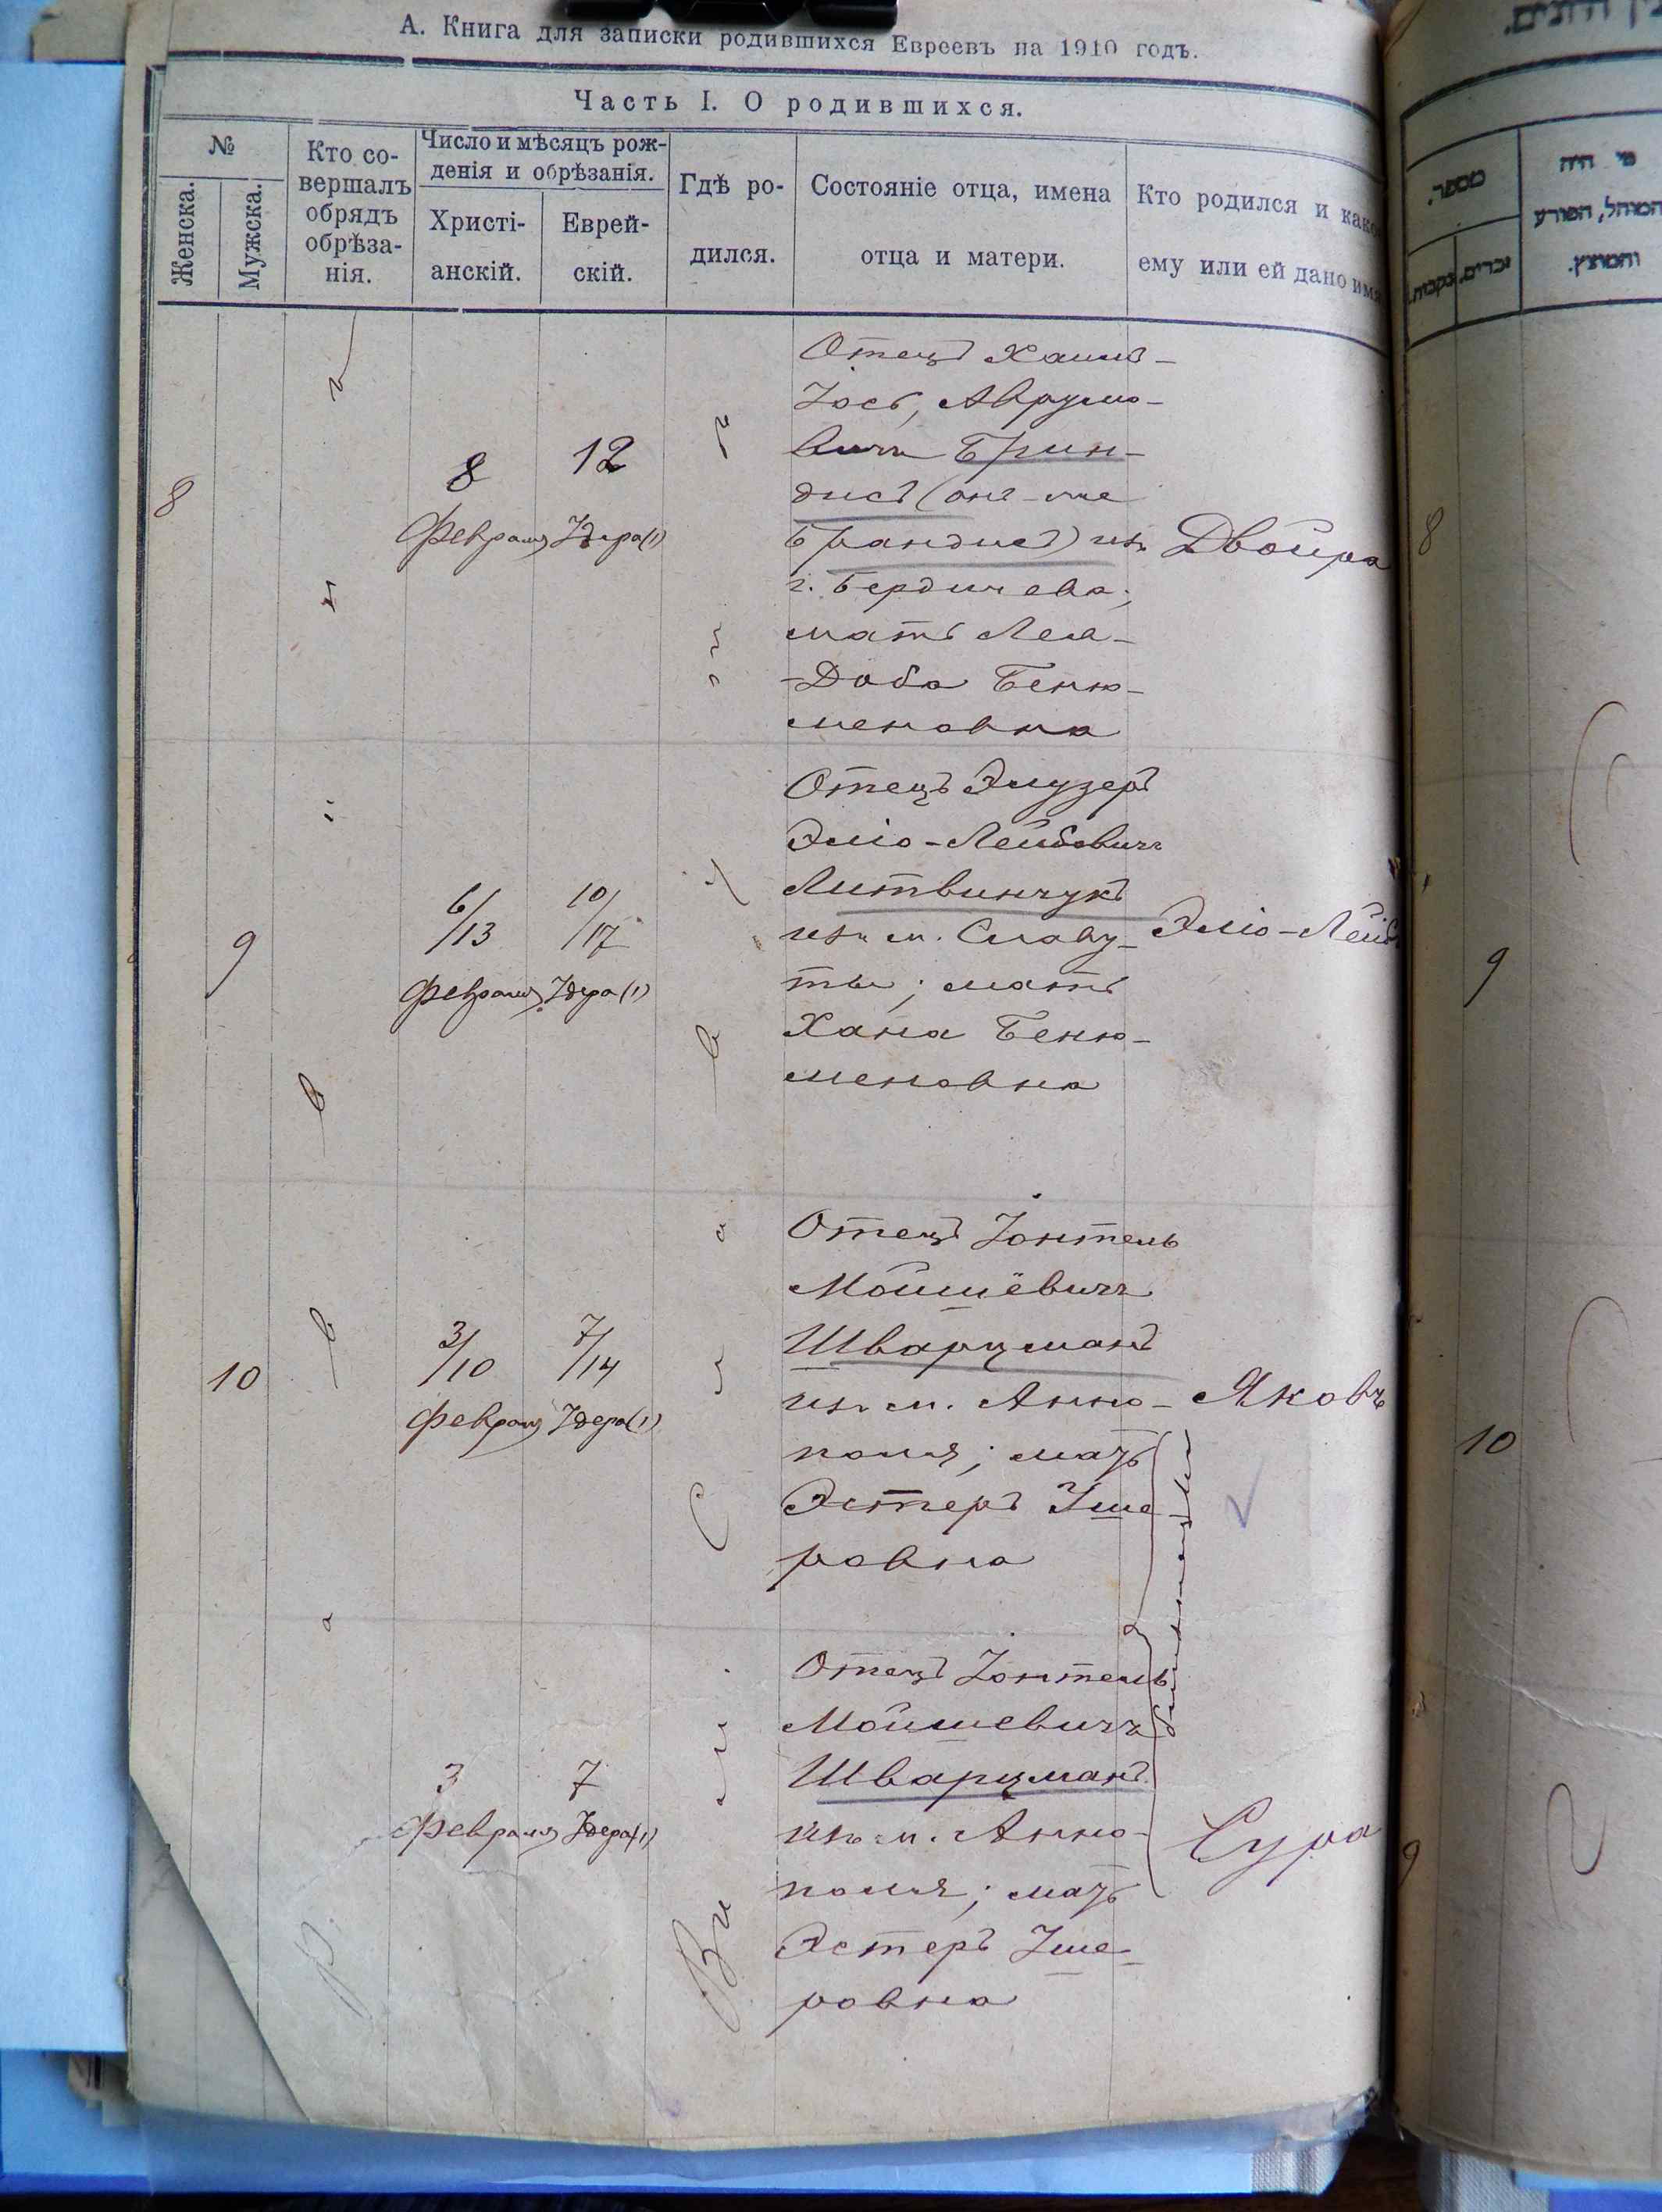 А. Книга для записки родившихся Евреевъ на 1910 годъ.
Часть I. О родившихся.
№
Женска.
Мужска.
Кто со-
вершалъ
обрядъ
обрѣза-
нія.
Число и мѣсяцъ рож-
денія и обрѣзанія.
Христі-
анскій.
Еврей-
скій.
Гдѣ ро-
дился.
Состояніе отца, имена
отца и матери.
Кто родился и како
ему или ей дано имя
8
8
февраля
12
Адера (1)
Отецъ Хаимъ-
Іось Аврумо-
вичъ Брин-
дисъ (онъ-же
Брандисъ) изъ
г. Бердичева;
мать Лея-
-Доба Беню-
меновна
Двойра
9
6/13
февраля
10/17
Адера (1)
Отецъ Элузеръ
Эліо-Лейбовичъ
Литвинчукъ
изъ м. Славу-
ты; мать
Хана Беню-
меновна
Эліо-Лейб
10
3/10
февраля
7/14
Адера (1)
Отецъ Іонтель
Мойшевичъ
Шварцманъ
изъ м. Анно-
поля; мать
Эстеръ Уше
ровна
Яковъ
близнецы
3
февраля
7
Адера (1)
Отецъ Іонтель
Мойшевичъ
Шварцманъ
изъ м. Анно-
поля; мать
Эстеръ Уше-
ровна
Сура
מספר.
זכרים.
נקבות.
מי היה
המוהל, הפורע
והמוצץ.
8
9
10
9